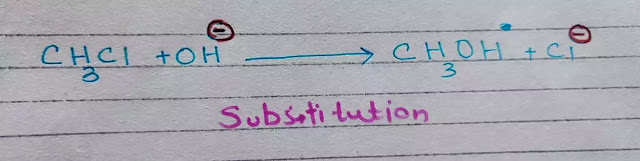 CH₃Cl + OH⊖ ⟶ CH₃OH + Cl⊖
Substitution